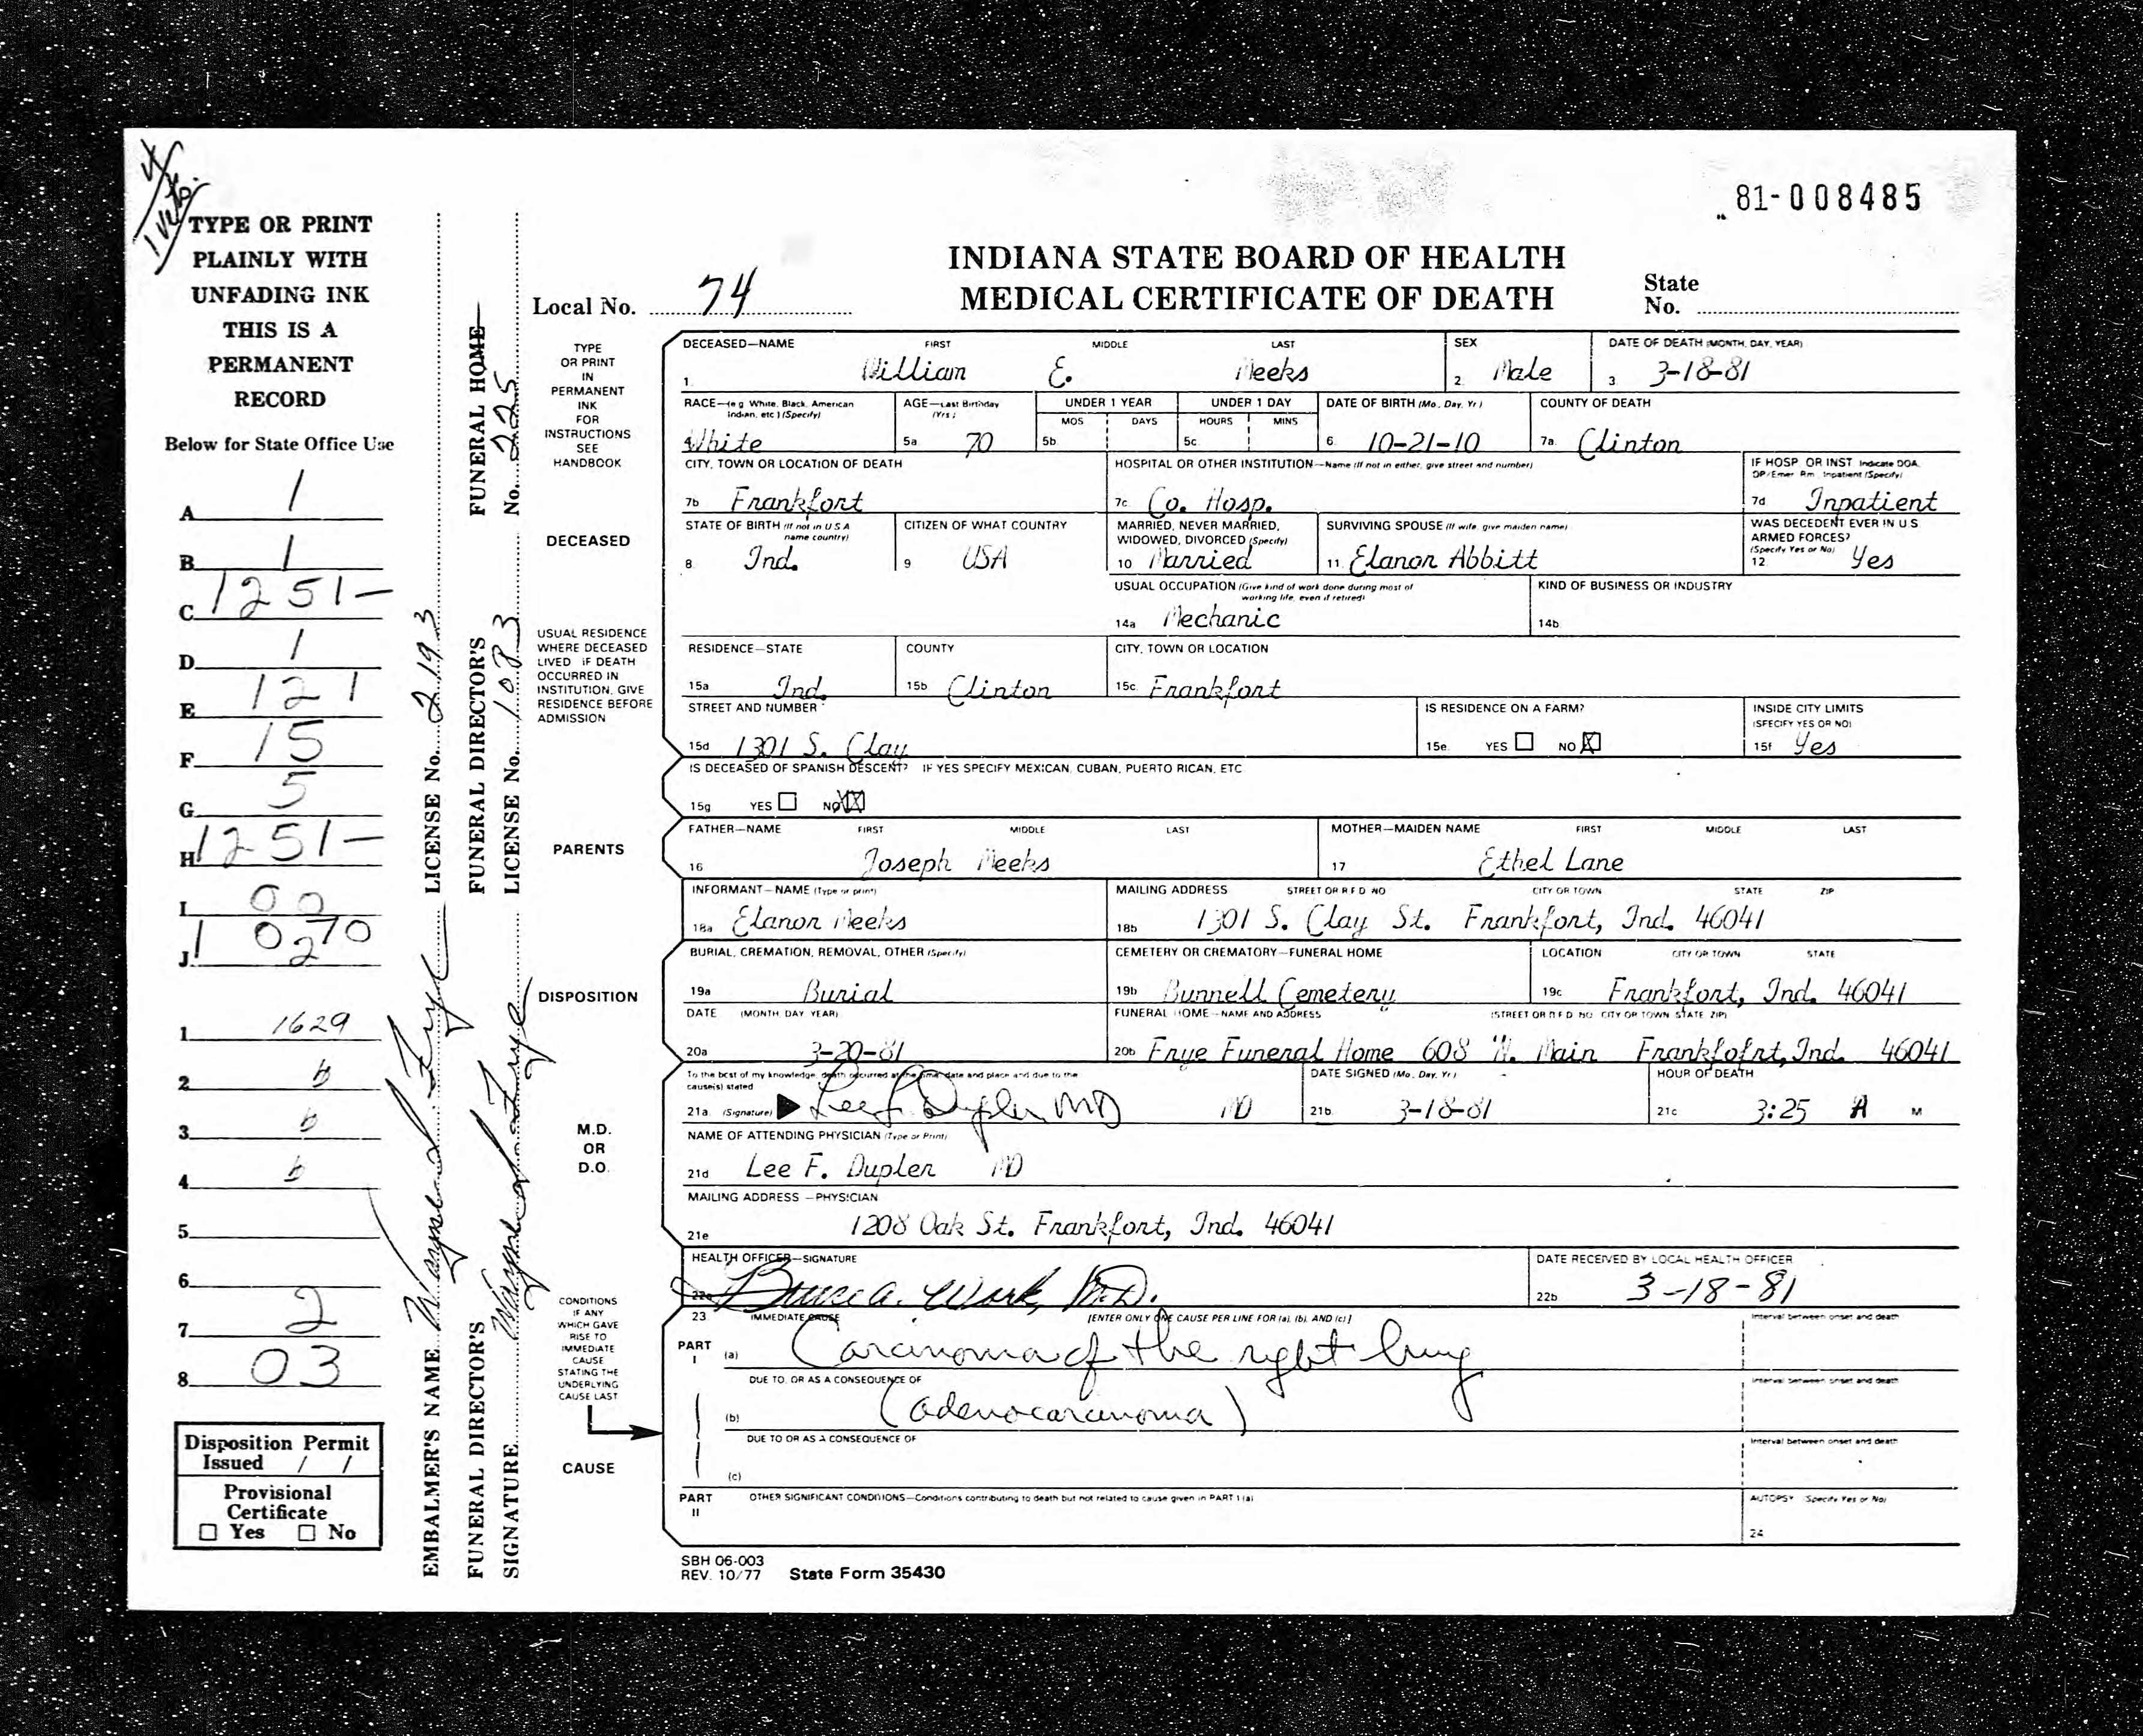 81-008485
INDIANA STATE BOARD OF HEALTH
MEDICAL CERTIFICATE OF DEATH
Local No. 74
State No.
TYPE OR PRINT
PLAINLY WITH
UNFADING INK
THIS IS A
PERMANENT
RECORD
Below for State Office Use
A 1
B 1
C 1251-
D 1
E 121
F 15
G 5
H 1251-
I 00
J 1 0270
1 1629
2 b
3 b
4 b
5
6
7 2
8 03
Disposition Permit
Issued / /
Provisional
Certificate
☐ Yes ☐ No
EMBALMER'S NAME Wayne J Frye LICENSE No. 2193
FUNERAL DIRECTOR'S SIGNATURE Wayne J Frye FUNERAL DIRECTOR'S LICENSE No. 1083 FUNERAL HOME No. 225
TYPE
OR PRINT
IN
PERMANENT
INK
FOR
INSTRUCTIONS
SEE
HANDBOOK
DECEASED
USUAL RESIDENCE
WHERE DECEASED
LIVED IF DEATH
OCCURRED IN
INSTITUTION, GIVE
RESIDENCE BEFORE
ADMISSION
PARENTS
DISPOSITION
M.D.
OR
D.O.
CONDITIONS
IF ANY
WHICH GAVE
RISE TO
IMMEDIATE
CAUSE
STATING THE
UNDERLYING
CAUSE LAST
CAUSE
DECEASED—NAME FIRST MIDDLE LAST SEX DATE OF DEATH (MONTH, DAY, YEAR)
1. William E. Meeks 2. Male 3. 3-18-81
RACE—(e.g. White, Black, American Indian, etc.) (Specify) AGE—Last Birthday (Yrs.) UNDER 1 YEAR UNDER 1 DAY DATE OF BIRTH (Mo., Day, Yr.) COUNTY OF DEATH
MOS DAYS HOURS MINS
4. White 5a 70 5b. 5c. 6. 10-21-10 7a. Clinton
CITY, TOWN OR LOCATION OF DEATH HOSPITAL OR OTHER INSTITUTION—Name (If not in either, give street and number) IF HOSP. OR INST. Indicate DOA, OP/Emer. Rm. Inpatient (Specify)
7b Frankfort 7c. Co. Hosp. 7d Inpatient
STATE OF BIRTH (If not in U.S.A. name country) CITIZEN OF WHAT COUNTRY MARRIED, NEVER MARRIED, WIDOWED, DIVORCED (Specify) SURVIVING SPOUSE (If wife, give maiden name) WAS DECEDENT EVER IN U.S. ARMED FORCES? (Specify Yes or No)
8. Ind. 9 USA 10 Married 11. Elanor Abbitt 12. Yes
USUAL OCCUPATION (Give kind of work done during most of working life, even if retired) KIND OF BUSINESS OR INDUSTRY
14a Mechanic 14b.
RESIDENCE—STATE COUNTY CITY, TOWN OR LOCATION
15a Ind. 15b Clinton 15c. Frankfort
STREET AND NUMBER IS RESIDENCE ON A FARM? INSIDE CITY LIMITS (SPECIFY YES OR NO)
15d 1301 S. Clay 15e. YES ☐ NO ☒ 15f Yes
IS DECEASED OF SPANISH DESCENT? IF YES SPECIFY MEXICAN, CUBAN, PUERTO RICAN, ETC
15g YES ☐ NO ☒
FATHER—NAME FIRST MIDDLE LAST MOTHER—MAIDEN NAME FIRST MIDDLE LAST
16 Joseph Meeks 17 Ethel Lane
INFORMANT—NAME (Type or print) MAILING ADDRESS STREET OR R.F.D. NO CITY OR TOWN STATE ZIP
18a Elanor Meeks 18b 1301 S. Clay St. Frankfort, Ind. 46041
BURIAL, CREMATION, REMOVAL, OTHER (Specify) CEMETERY OR CREMATORY—FUNERAL HOME LOCATION CITY OR TOWN STATE
19a Burial 19b Bunnell Cemetery 19c Frankfort, Ind. 46041
DATE (MONTH, DAY, YEAR) FUNERAL HOME—NAME AND ADDRESS (STREET OR R.F.D. NO. CITY OR TOWN STATE ZIP)
20a 3-20-81 20b Frye Funeral Home 608 N. Main Frankfofrt,Ind. 46041
To the best of my knowledge, death occurred at the time, date and place and due to the cause(s) stated DATE SIGNED (Mo., Day, Yr.) HOUR OF DEATH
21a. (Signature) Lee F Dupler MD MD 21b. 3-18-81 21c 3:25 A M
NAME OF ATTENDING PHYSICIAN (Type or Print)
21d Lee F. Dupler MD
MAILING ADDRESS—PHYSICIAN
21e 1208 Oak St. Frankfort, Ind. 46041
HEALTH OFFICER—SIGNATURE DATE RECEIVED BY LOCAL HEALTH OFFICER
22a Bruce A. Work, M.D. 22b 3-18-81
23 IMMEDIATE CAUSE [ENTER ONLY ONE CAUSE PER LINE FOR (a), (b), AND (c)] Interval between onset and death
PART I (a) Carcinoma of the right lung
DUE TO, OR AS A CONSEQUENCE OF Interval between onset and death
(b) (adenocarcinoma)
DUE TO OR AS A CONSEQUENCE OF Interval between onset and death
(c)
PART II OTHER SIGNIFICANT CONDITIONS—Conditions contributing to death but not related to cause given in PART I (a) AUTOPSY (Specify Yes or No)
24
SBH 06-003
REV. 10/77 State Form 35430